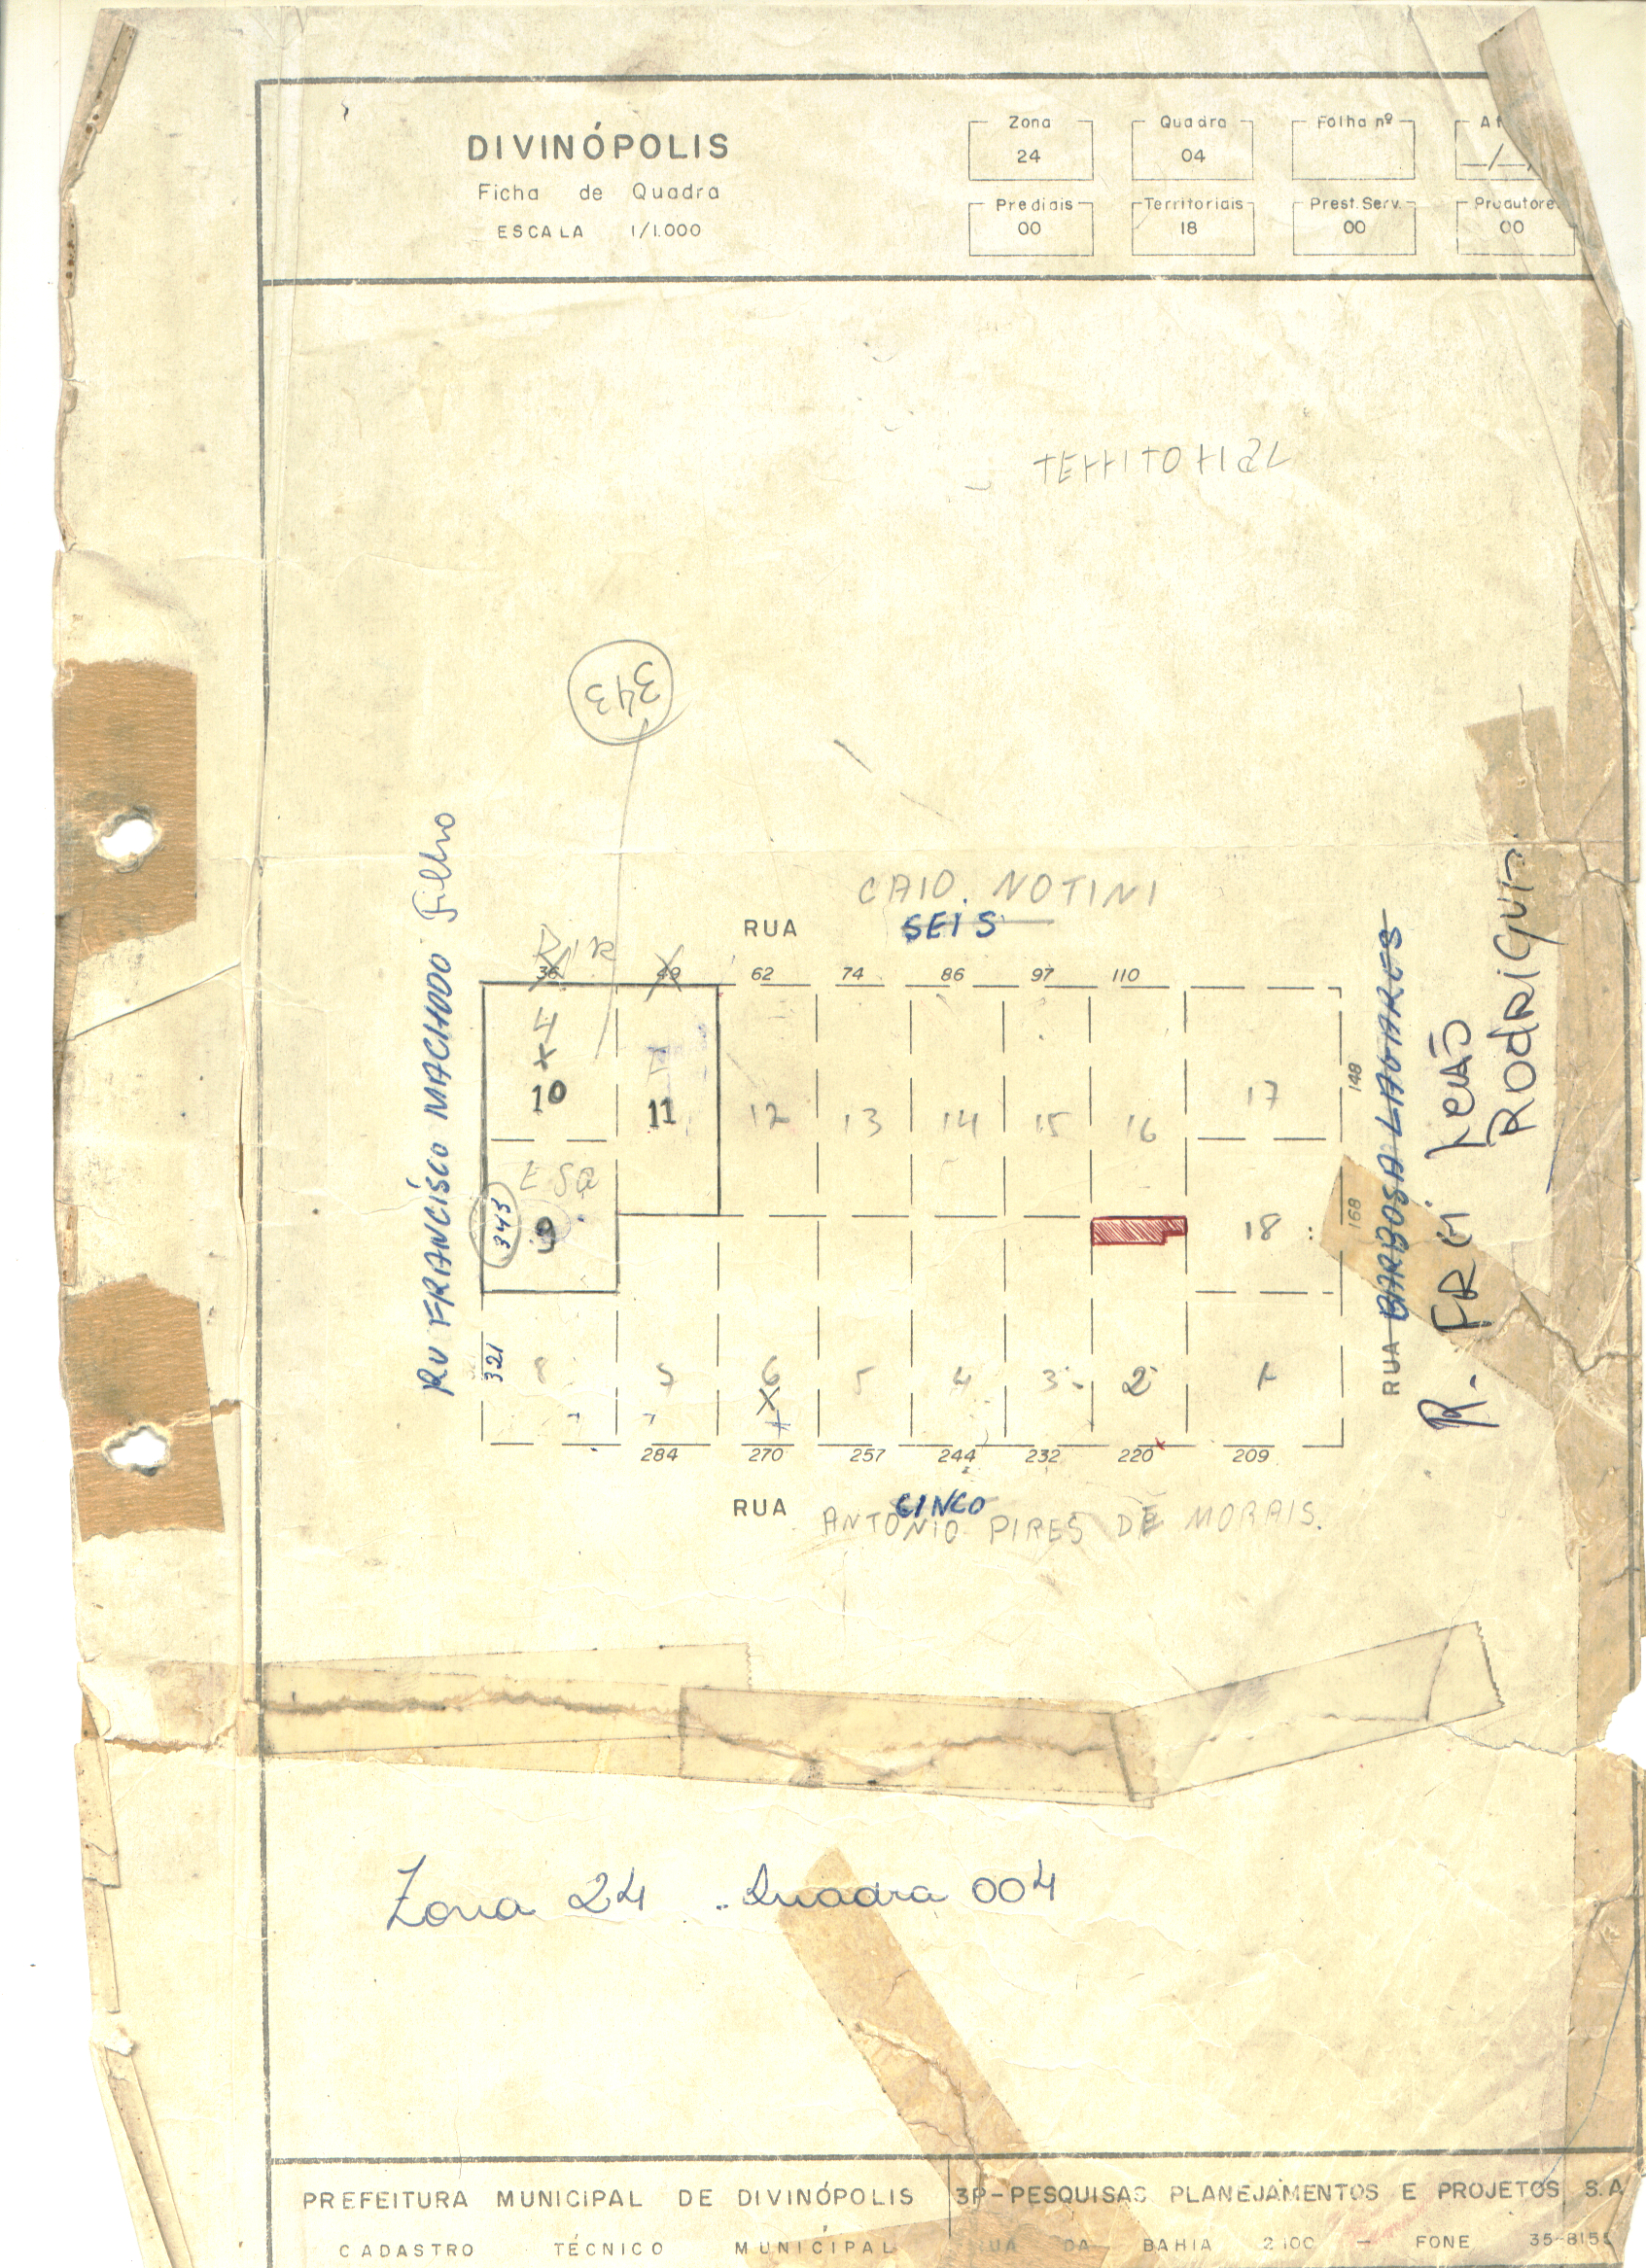 DIVINÓPOLIS
Ficha de Quadra
ESCALA 1/1.000
Zona
24
Quadra
04
Folha nº
Prediais
00
Territoriais
18
Prest. Serv.
00
Produtore
00
343
CAIO. NOTINI
RUA SEIS
36 49 62 74 86 97 110
RU FRANCÍSCO MACHADO Filho
10 11 12 13 14 15 16 17
148
ESQ
343
9
18
168
RUA BARBOSA
R. FREI
RODRIGUES
321
8 6 5 4 3 2 1
284 270 257 244 232 220 209
RUA CINCO
ANTONIO PIRES DE MORAIS.
Zona 24 Quadra 004
PREFEITURA MUNICIPAL DE DIVINÓPOLIS
CADASTRO TÉCNICO MUNICIPAL
3P-PESQUISAS PLANEJAMENTOS E PROJETOS S.A
RUA DA BAHIA 2100 — FONE 35-815